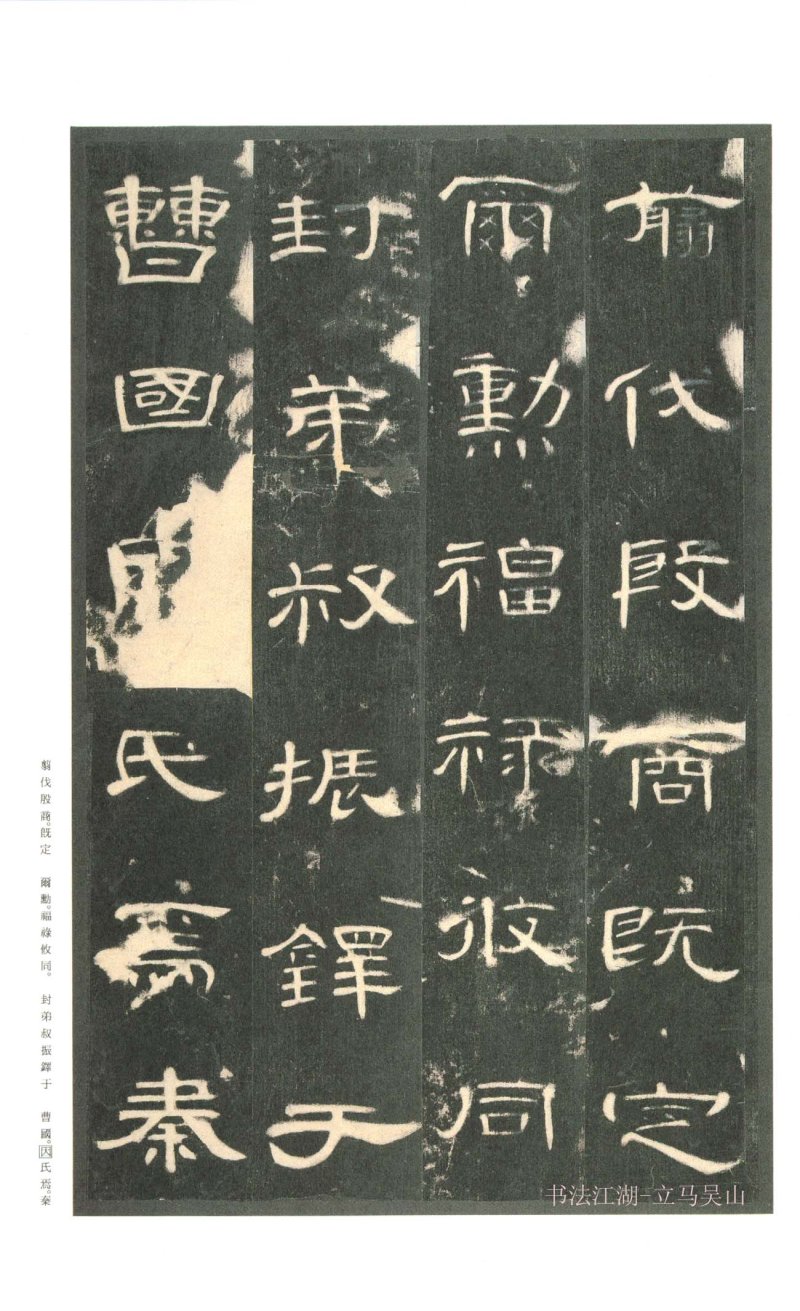 翦伐殷商既定
爾勳福祿攸同
封弟叔振鐸于
曹國氏焉秦
翦伐殷商。既定　爾勳。福祿攸同。　封弟叔振鐸于　曹國。因氏焉。秦
书法江湖-立马吴山